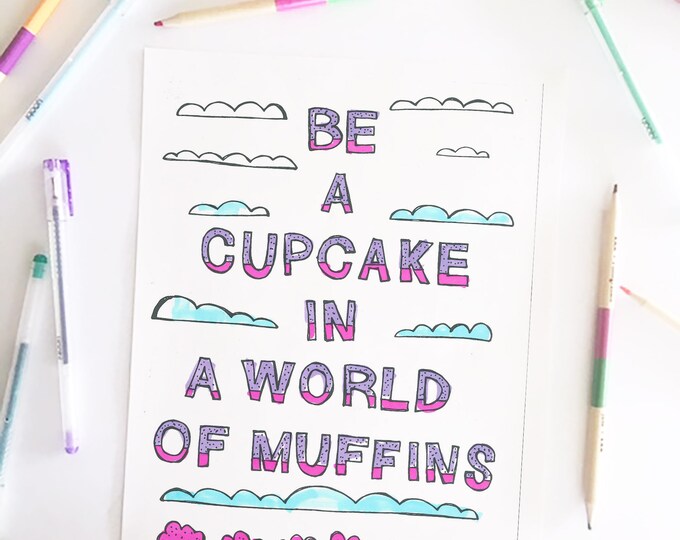 BE
A
CUPCAKE
IN
A WORLD
OF MUFFINS